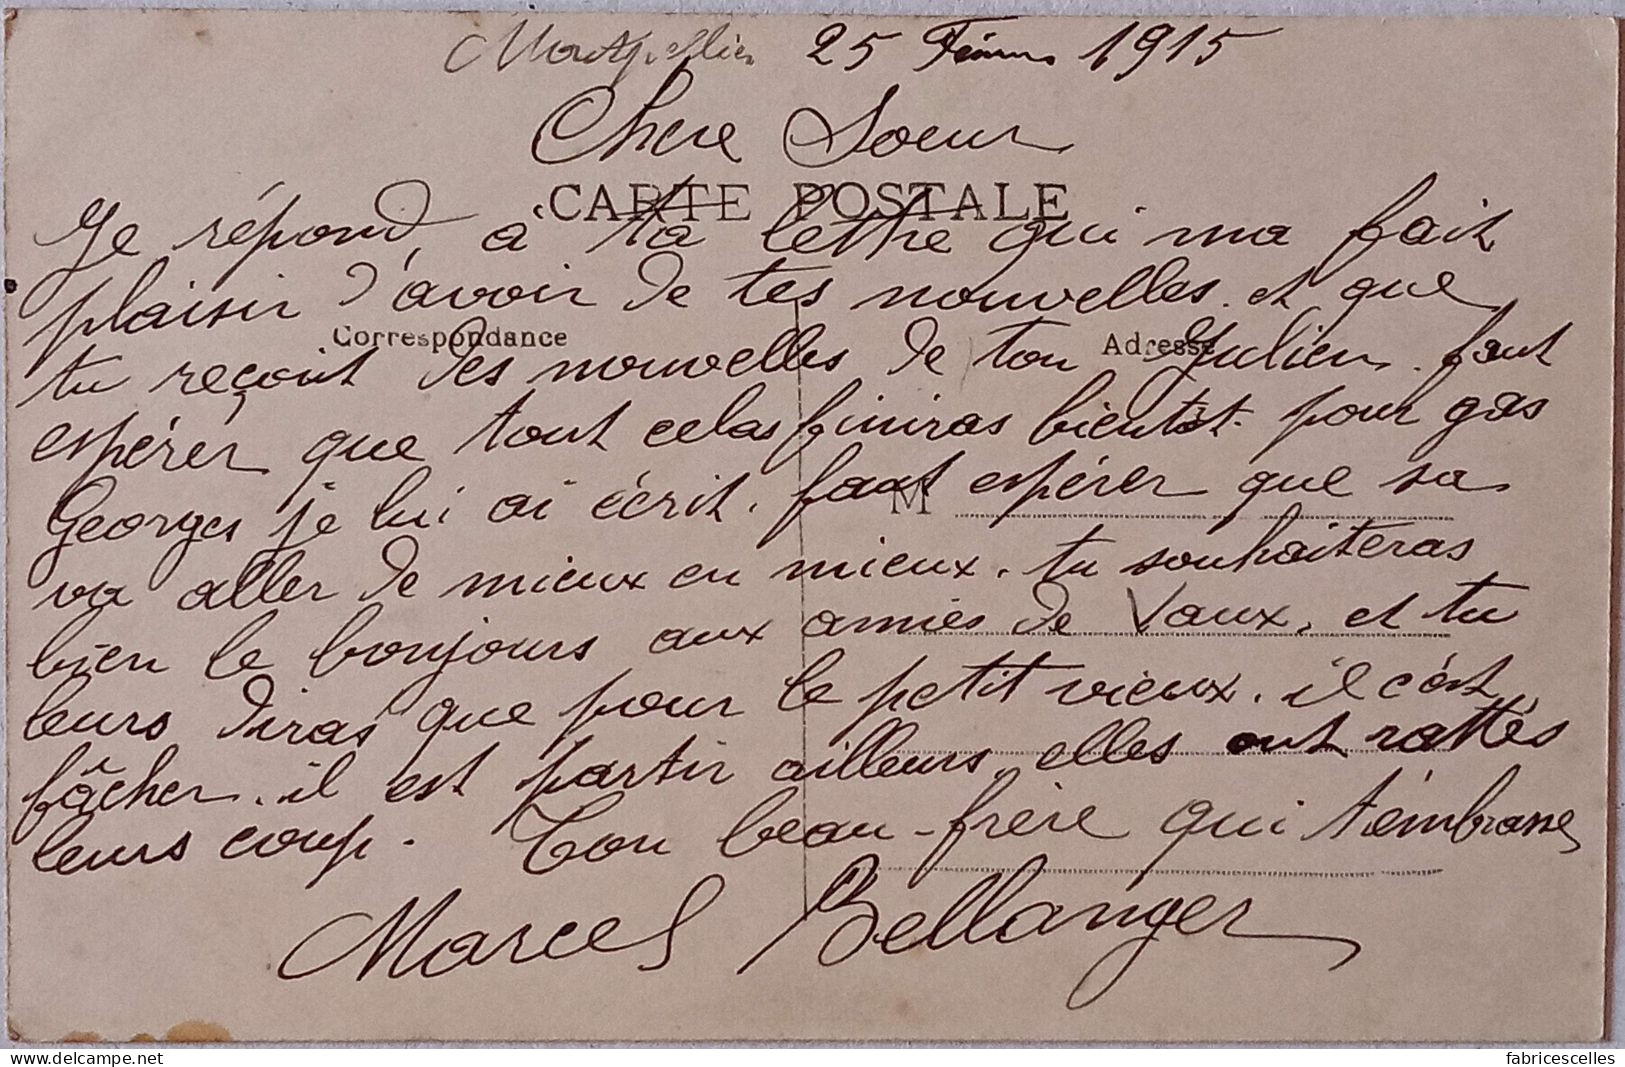 Montpellier 25 Février 1915
Chere Soeur
CARTE POSTALE
Je répond, à ta lettre qui ma fait
plaisir d'avoir de tes nouvelles. et que
Correspondance
Adresse
tu reçoit des nouvelles de ton Julien. faut
espérer que tout celas finiras bientôt. pour gas
Georges je lui ai écrit. faut espérer que sa
M
va aller de mieux en mieux. tu souhaiteras
bien le bonjours aux amies de Vaux, et tu
leurs diras que pour le petit vieux. il c'est
fâcher. il est partir ailleurs, elles ont rattés
leurs coup. Ton beau-frère qui t'émbrasse
Marcel Bellanger
fabricescelles